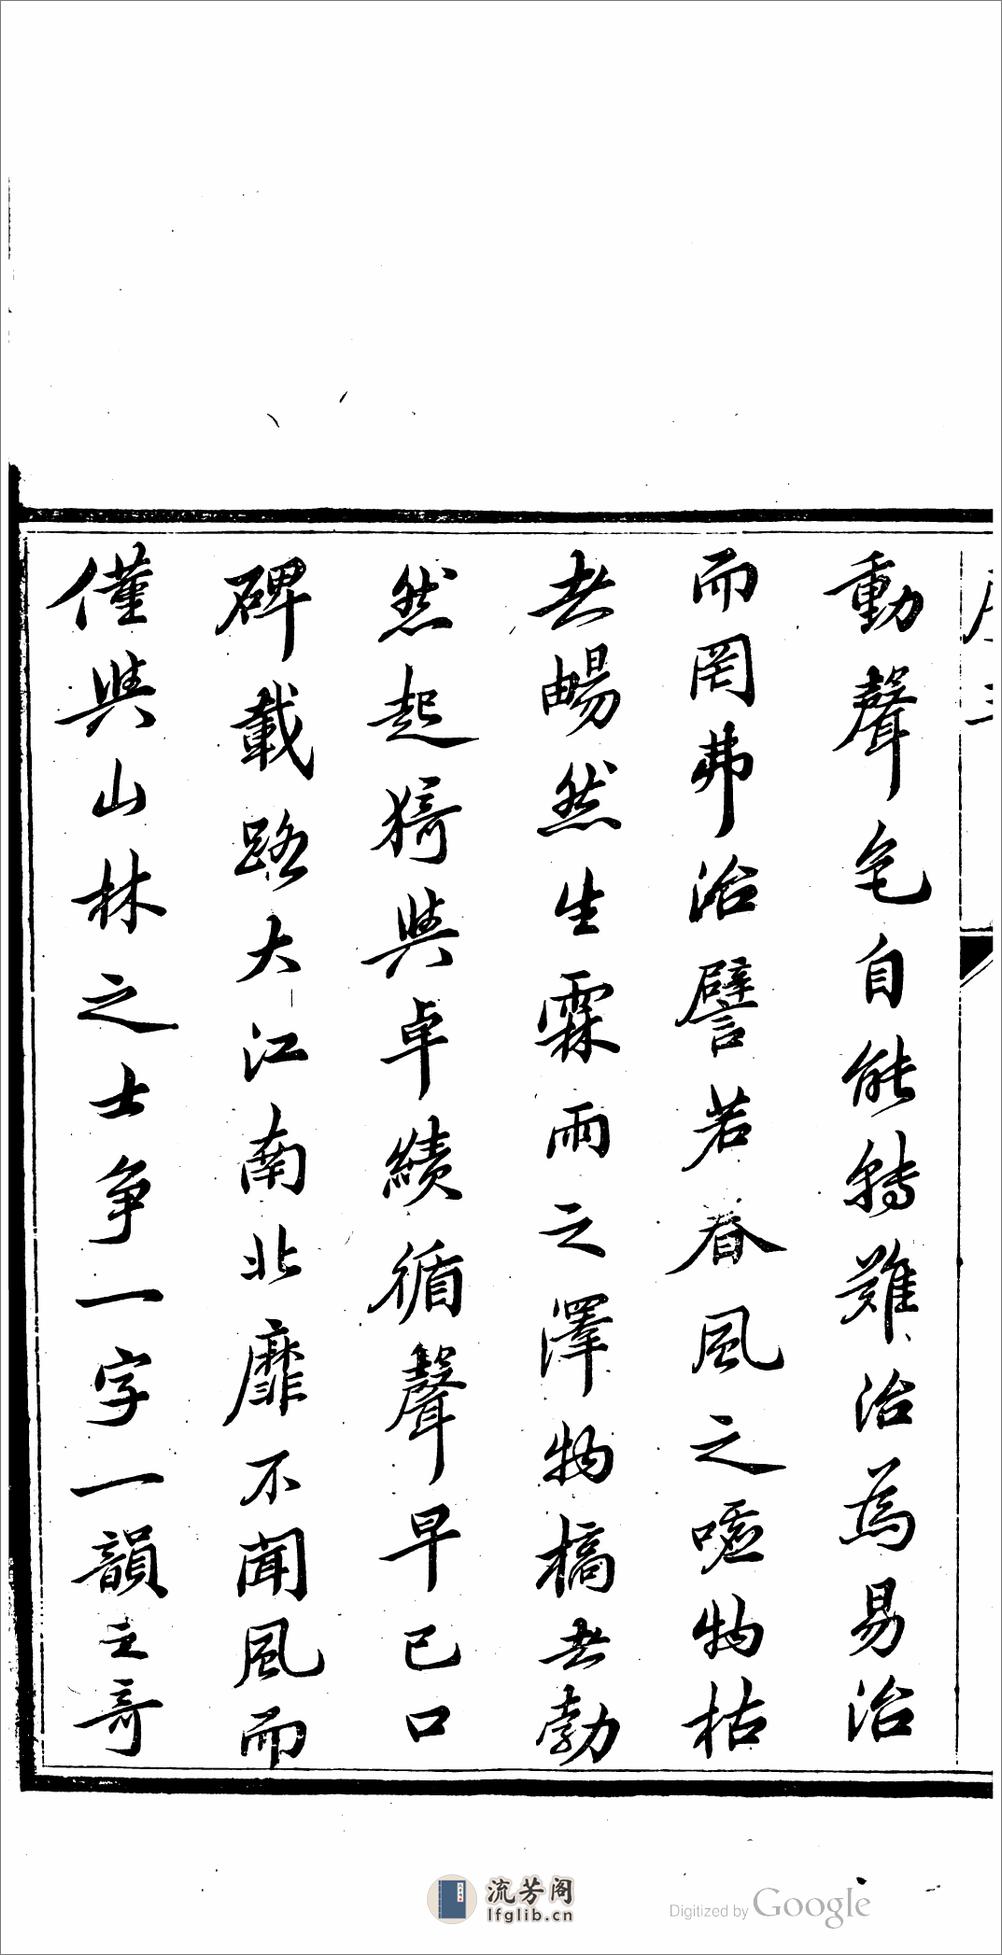 動聲色自能轉難治為易治
而罔弗治譬若春風之噓物枯
者暢然生霖雨之澤物槁者勃
然起猗與卓績循聲早已口
碑載路大江南北靡不聞風而
僅與山林之士爭一字一韻之奇
流芳阁
lfglib.cn
Digitized by Google